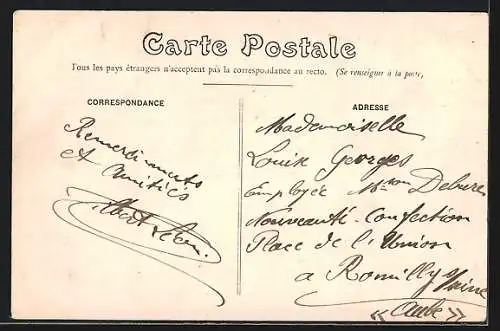 Carte Postale
Tous les pays étrangers n'acceptent pas la correspondance au recto. (Se renseigner à la poste)
CORRESPONDANCE
ADRESSE
Remerciements
et Amitiés
Albert Léon.
Mademoiselle
Louise Georges
Employée Mson Debure
Nouveauté - Confection
Place de l'Union
a Romilly s/Seine
« Aube »